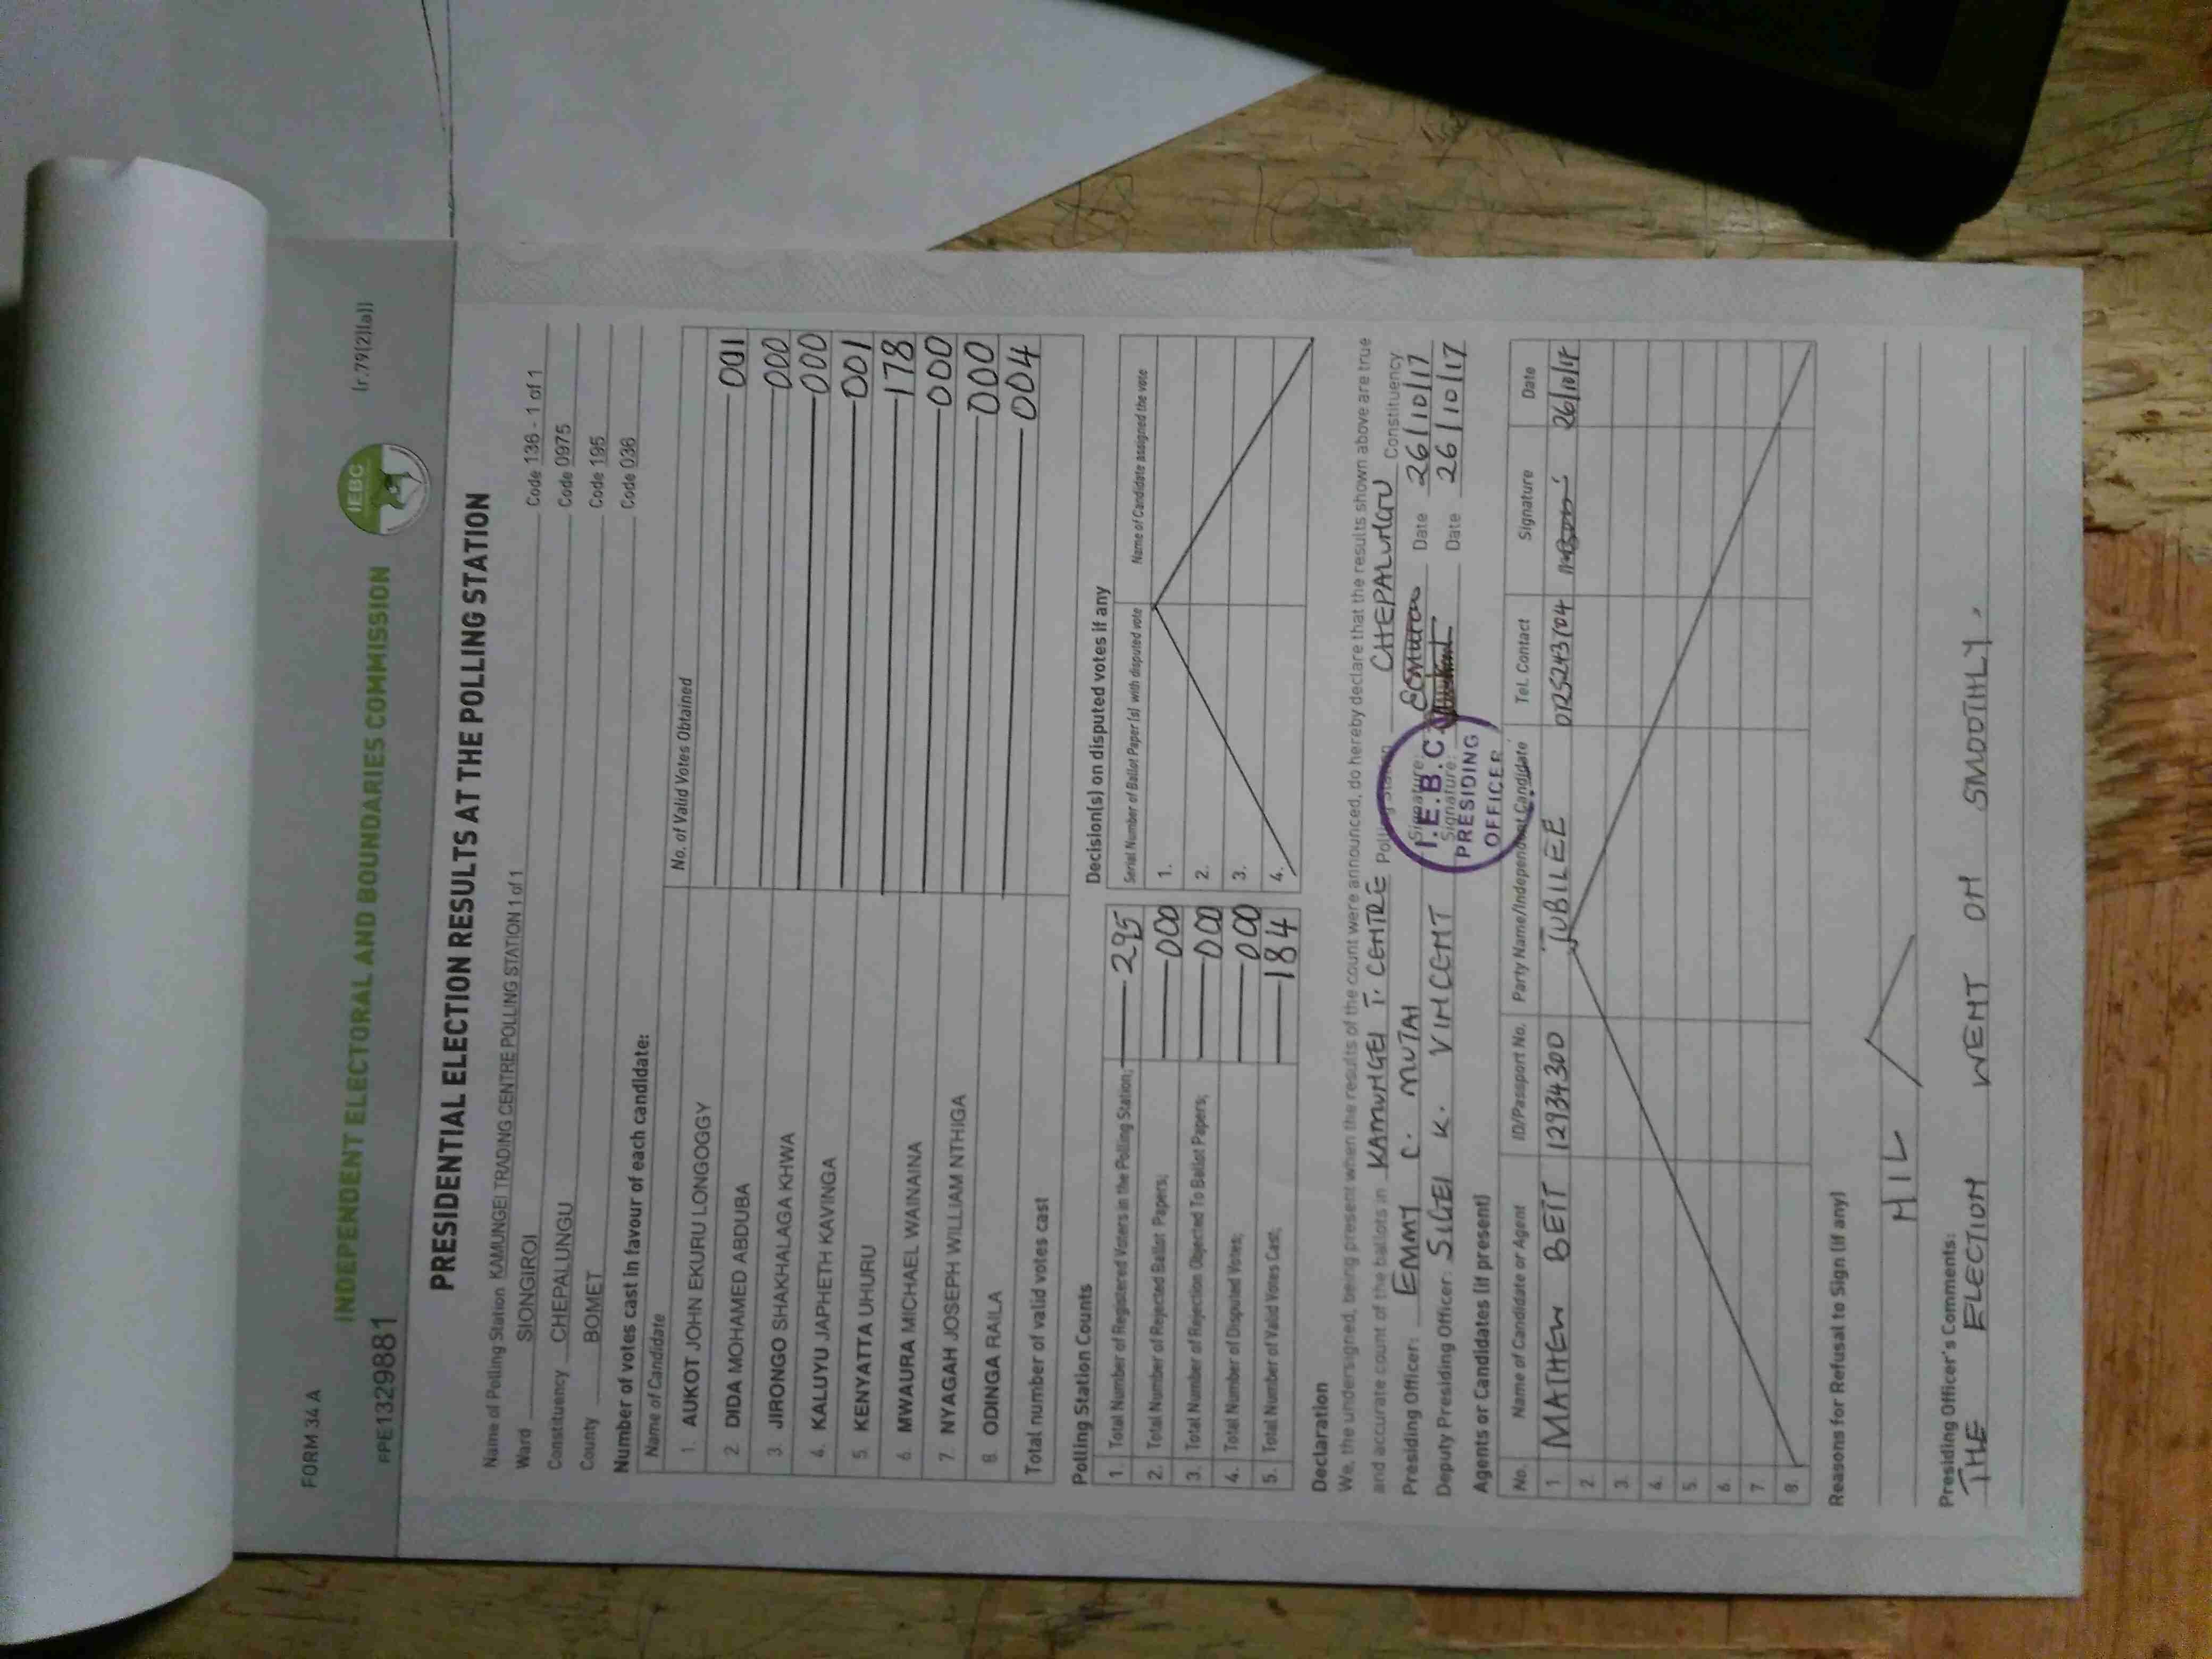 FORM 34 A
(r.79(2)(a))
INDEPENDENT ELECTORAL AND BOUNDARIES COMMISSION
IEBC
PPE1329881
PRESIDENTIAL ELECTION RESULTS AT THE POLLING STATION
Name of Polling Station KAMUNGEI TRADING CENTRE POLLING STATION 1 of 1 Code 136 - 1 of 1
Ward SIONGIROI Code 0975
Constituency CHEPALUNGU Code 195
County BOMET Code 036
Number of votes cast in favour of each candidate:
Name of Candidate No. of Valid Votes Obtained
1. AUKOT JOHN EKURU LONGOGGY 001
2. DIDA MOHAMED ABDUBA 000
3. JIRONGO SHAKHALAGA KHWA 000
4. KALUYU JAPHETH KAVINGA 001
5. KENYATTA UHURU 178
6. MWAURA MICHAEL WAINAINA 000
7. NYAGAH JOSEPH WILLIAM NTHIGA 000
8. ODINGA RAILA 004
Total number of valid votes cast
Polling Station Counts
1. Total Number of Registered Voters in the Polling Station; 295
2. Total Number of Rejected Ballot Papers; 000
3. Total Number of Rejection Objected To Ballot Papers; 000
4. Total Number of Disputed Votes; 000
5. Total Number of Valid Votes Cast; 184
Decision(s) on disputed votes if any
Serial Number of Ballot Paper (s) with disputed vote Name of Candidate assigned the vote
1.
2.
3.
4.
Declaration
We, the undersigned, being present when the results of the count were announced, do hereby declare that the results shown above are true
and accurate count of the ballots in KAMUNGEI T. CENTRE Polling Station CHEPALUNGU Constituency
Presiding Officer: EMMY C. MUTAI Signature: Date 26/10/17
Deputy Presiding Officer: SIGEI K. VINCENT Signature: Date 26/10/17
I.E.B.C
PRESIDING
OFFICER
Agents or Candidates (if present)
No. Name of Candidate or Agent ID/Passport No. Party Name/Independent Candidate Tel. Contact Signature Date
1 MATHEW BETT 12934300 JUBILEE 0725243704 26/10/17
2.
3.
4.
5.
6.
7.
8.
Reasons for Refusal to Sign (if any)
NIL
Presiding Officer's Comments:
THE ELECTION WENT ON SMOOTHLY.